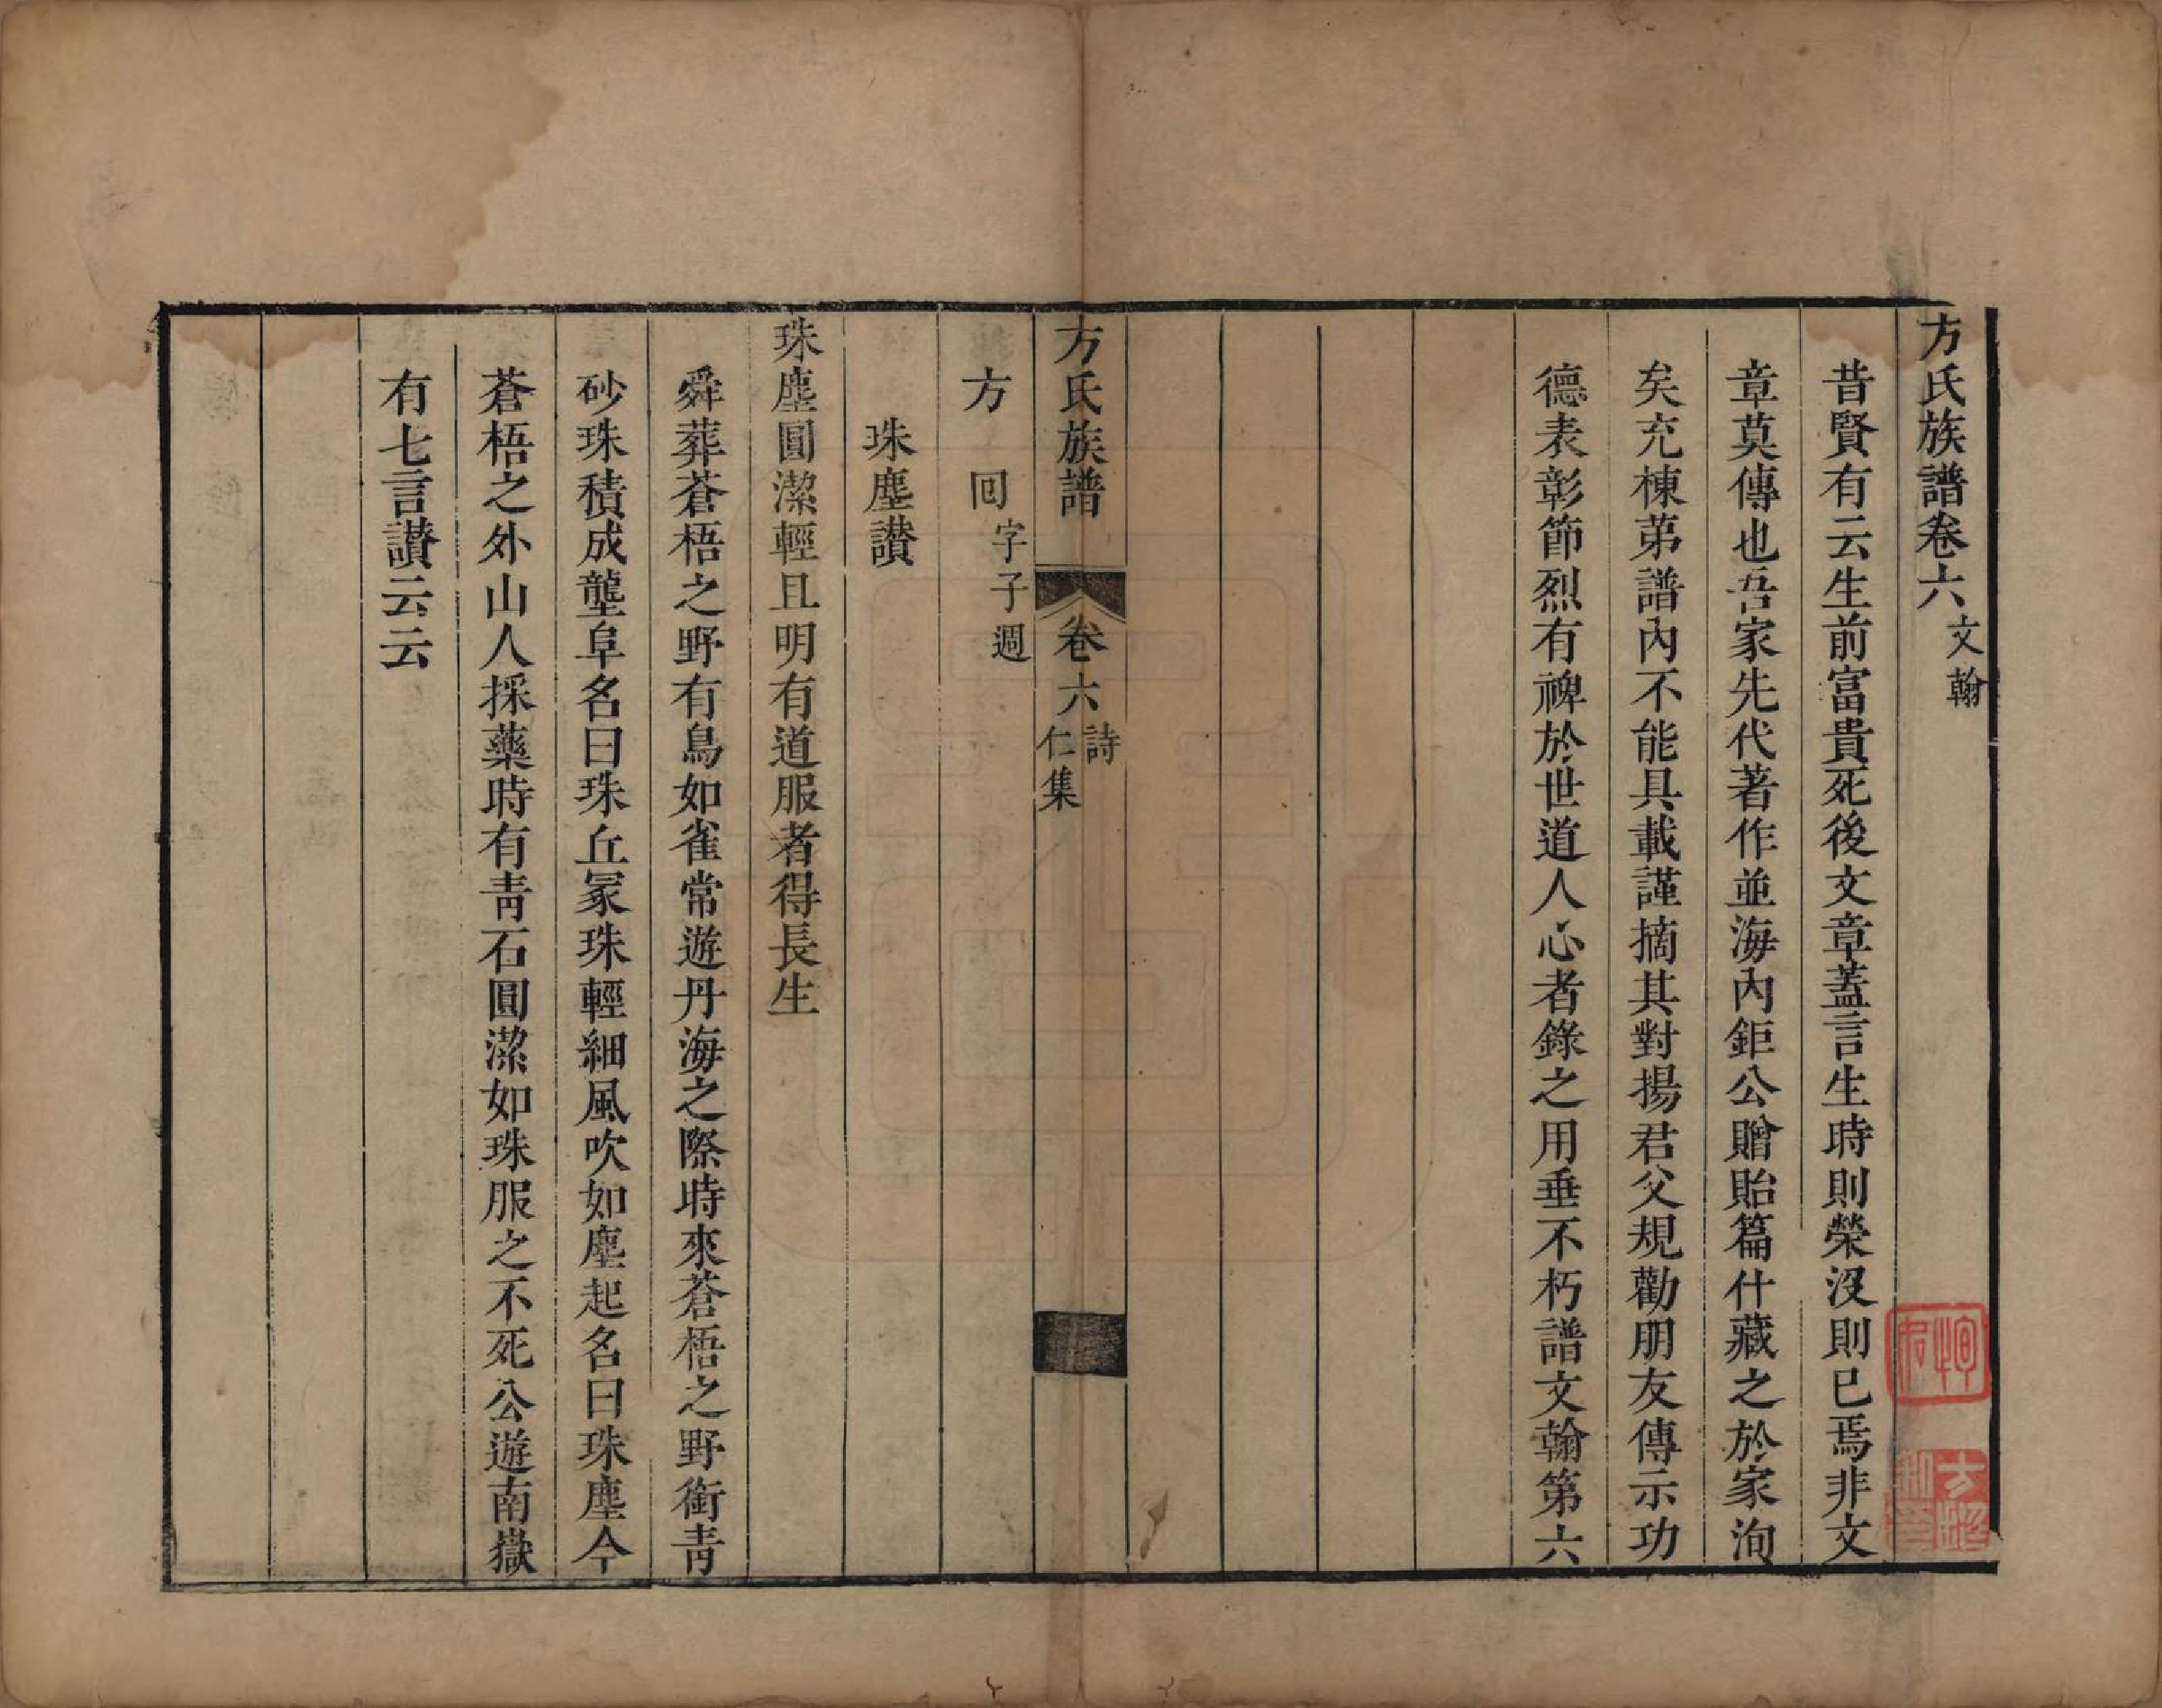 方氏族譜卷六文翰
昔賢有云生前富貴死後文章蓋言生時則榮沒則已焉非文
章莫傳也吾家先代著作並海內鉅公贈貽篇什藏之於家洵
矣充棟第譜內不能具載謹摘其對揚君父規勸朋友傳示功
德表彰節烈有裨於世道人心者錄之用垂不朽譜文翰第六
方氏族譜
卷六
詩
仁集
方　回字子週
珠塵讃
珠塵圓潔輕且明有道服者得長生
舜葬蒼梧之野有鳥如雀常遊丹海之際時來蒼梧之野銜靑
砂珠積成壟阜名曰珠丘冢珠輕細風吹如塵起名曰珠塵今
蒼梧之外山人採藥時有靑石圓潔如珠服之不死公遊南嶽
有七言讃云云